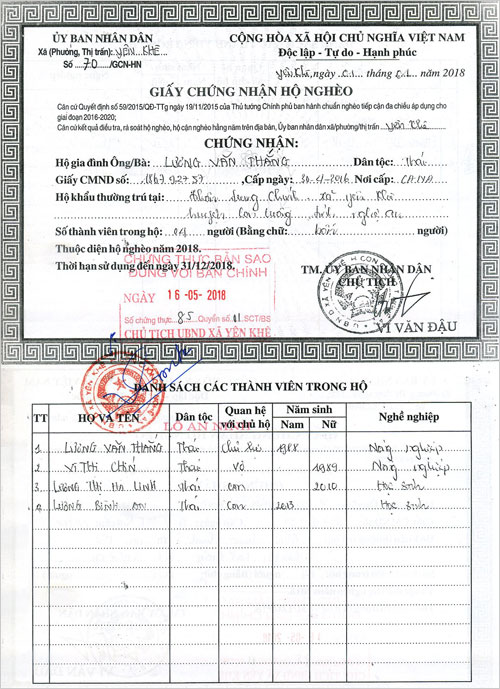 ỦY BAN NHÂN DÂN
Xã (Phường, Thị trấn): YÊN KHÊ
Số 70 /GCN-HN
CỘNG HÒA XÃ HỘI CHỦ NGHĨA VIỆT NAM
Độc lập - Tự do - Hạnh phúc
Yên Khê, ngày 01 tháng 01 năm 2018
GIẤY CHỨNG NHẬN HỘ NGHÈO
Căn cứ Quyết định số 59/2015/QĐ-TTg ngày 19/11/2015 của Thủ tướng Chính phủ ban hành chuẩn nghèo tiếp cận đa chiều áp dụng cho
giai đoạn 2016-2020;
Căn cứ kết quả điều tra, rà soát hộ nghèo, hộ cận nghèo hằng năm trên địa bàn, Ủy ban nhân dân xã/phường/thị trấn Yên Khê
CHỨNG NHẬN:
Hộ gia đình Ông/Bà: LƯƠNG VĂN THẮNG Dân tộc: Thái
Giấy CMND số: , Cấp ngày: 30-4-2016 Nơi cấp: CANA
Hộ khẩu thường trú tại: xã Yên Khê
huyện Con Cuông, tỉnh Nghệ An
Số thành viên trong hộ: 04 người (Bằng chữ: bốn người)
Thuộc diện hộ nghèo năm 2018.
Thời hạn sử dụng đến ngày 31/12/2018.
CHỨNG THỰC BẢN SAO
ĐÚNG VỚI BẢN CHÍNH
NGÀY 16-05-2018
Số chứng thực 85 Quyển số 11 SCT/BS
CHỦ TỊCH UBND XÃ YÊN KHÊ
TM. ỦY BAN NHÂN DÂN
CHỦ TỊCH
VI VĂN ĐẬU
DANH SÁCH CÁC THÀNH VIÊN TRONG HỘ
TT HỌ VÀ TÊN Dân tộc Quan hệ với chủ hộ Năm sinh Nam Nữ Nghề nghiệp
1 LƯƠNG VĂN THẮNG Thái Chủ hộ 1988 Nông nghiệp
2 VI THI CHÍN Thái Vợ 1989 Nông nghiệp
3 Lương Thi Hà Linh Thái Con 2010 Học sinh
4 Lương Bình An Thái Con 2013 Học sinh